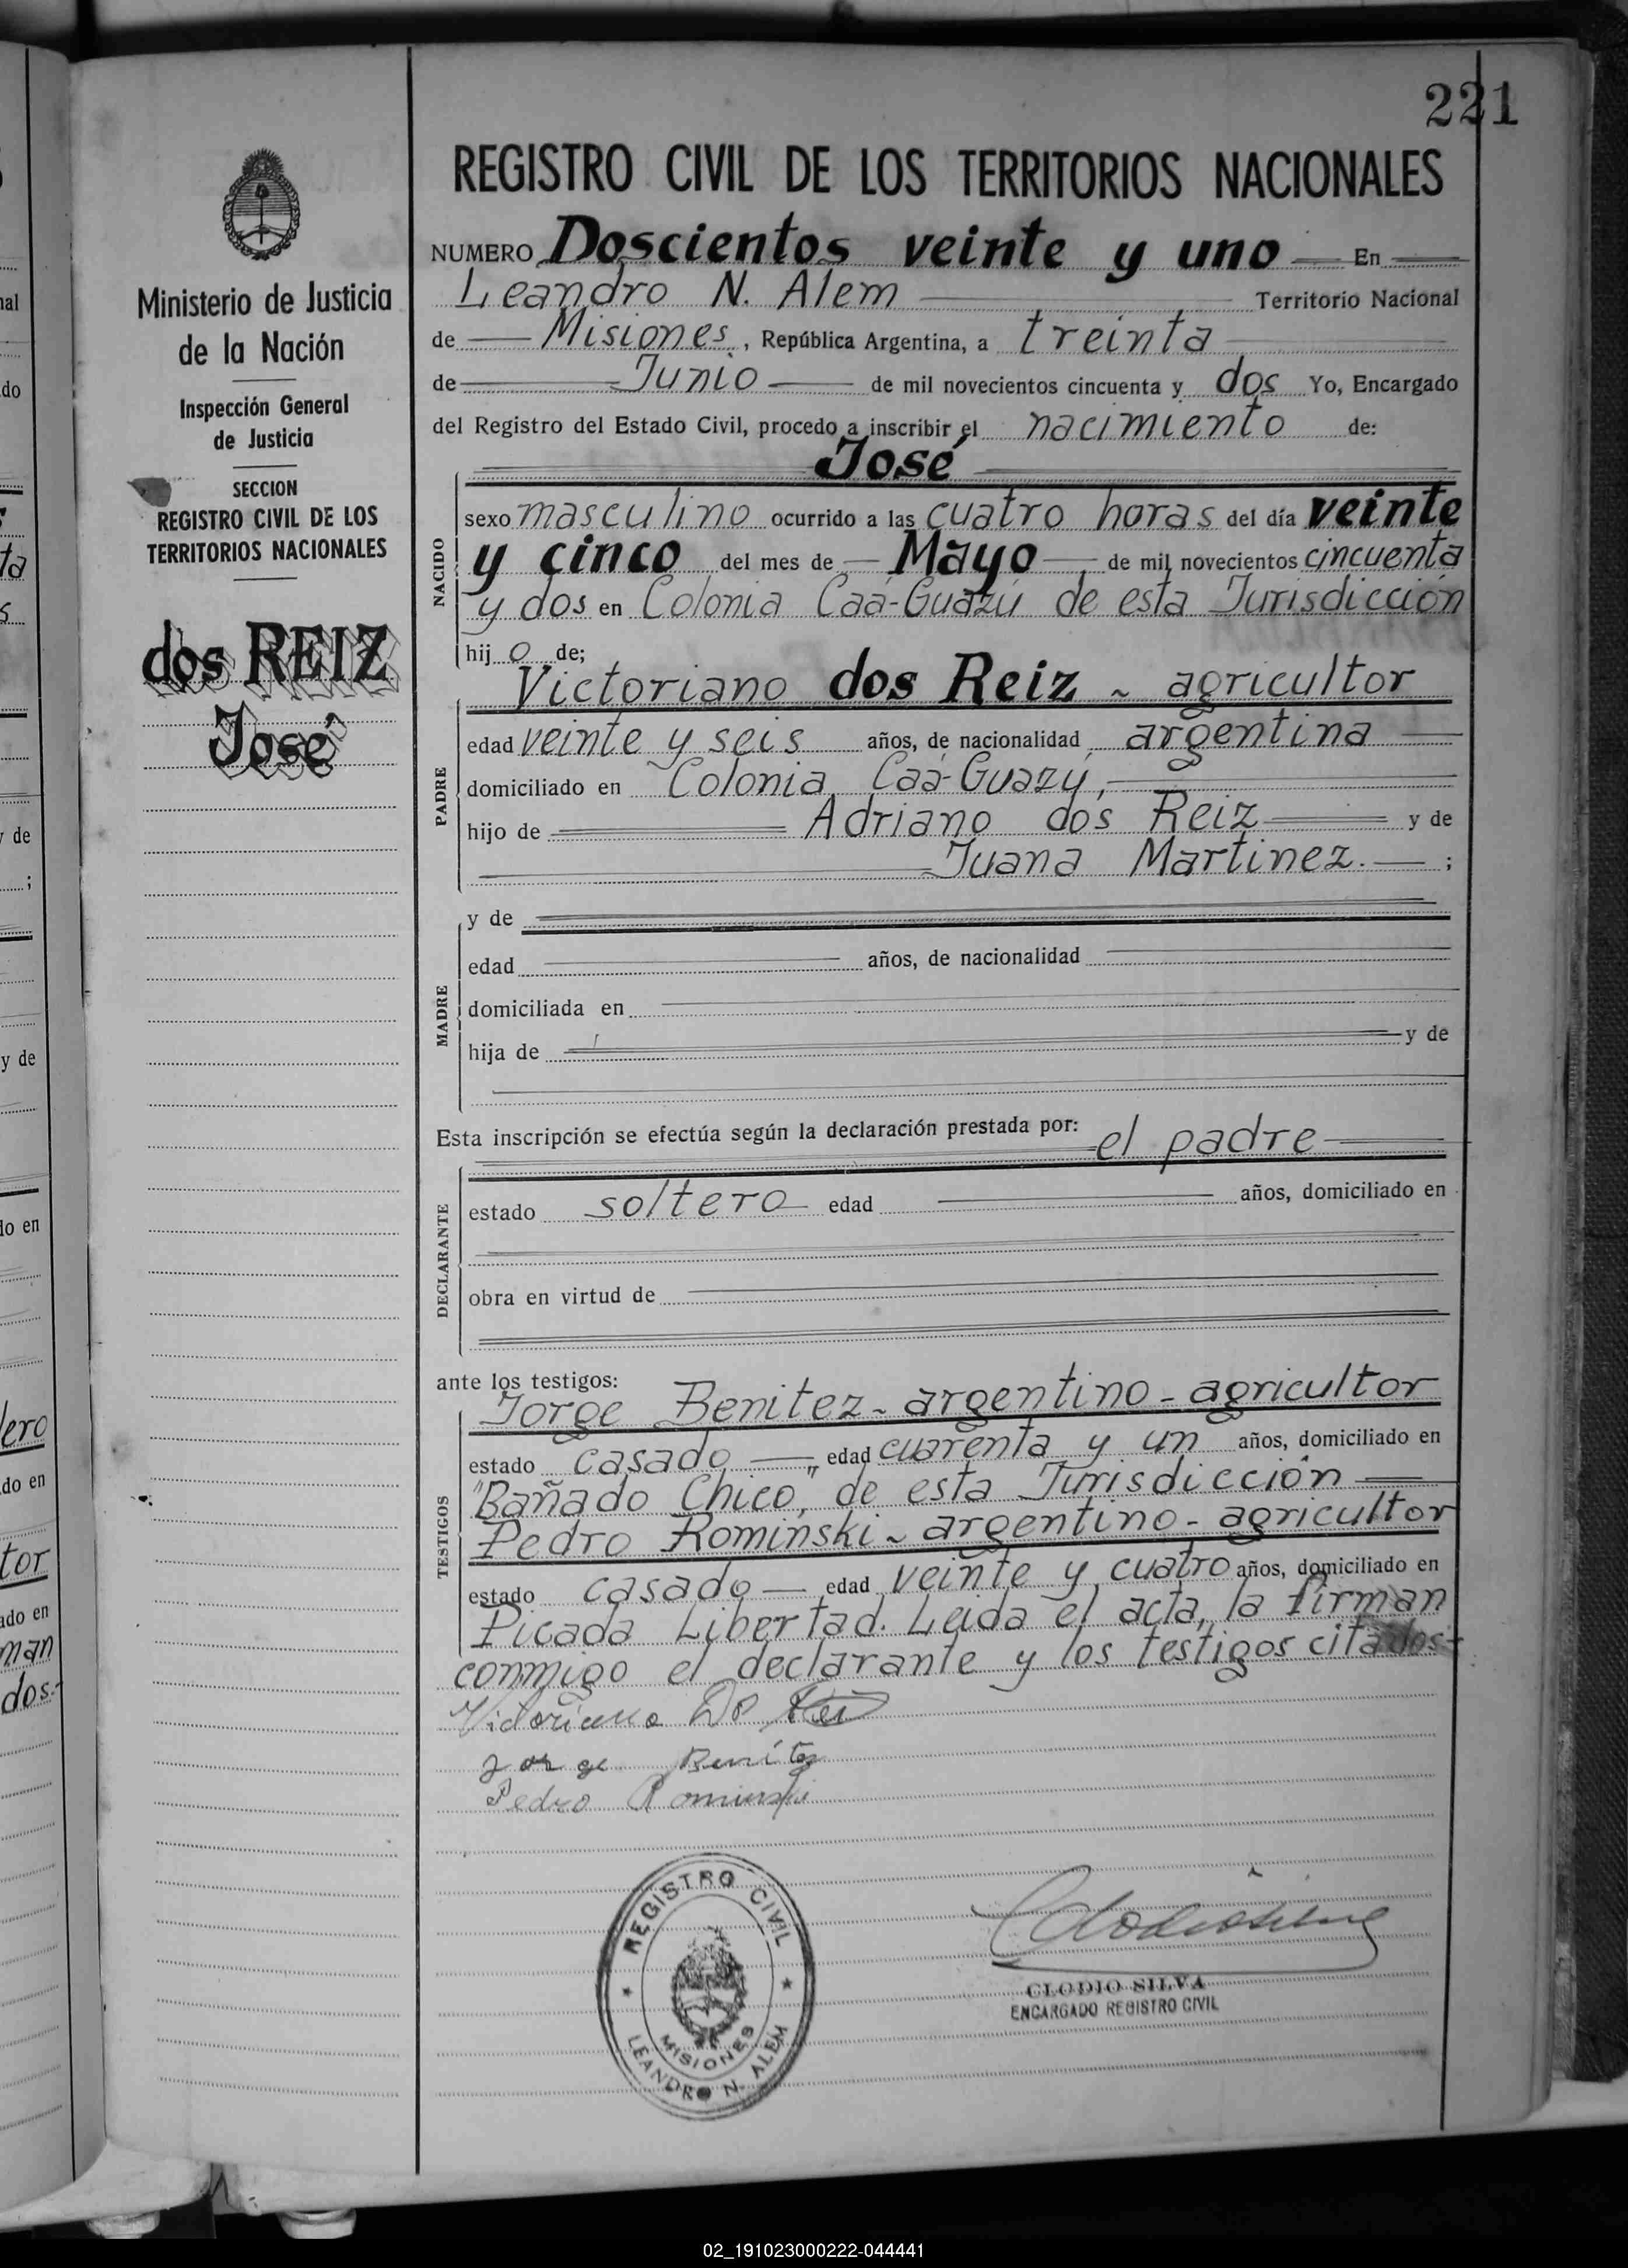 221
Ministerio de Justicia
de la Nación
Inspección General
de Justicia
SECCION
REGISTRO CIVIL DE LOS
TERRITORIOS NACIONALES
dos REIZ
José
REGISTRO CIVIL DE LOS TERRITORIOS NACIONALES
NUMERO Doscientos veinte y uno En
Leandro N. Alem Territorio Nacional
de Misiones, República Argentina, a treinta
de Junio de mil novecientos cincuenta y dos Yo, Encargado
del Registro del Estado Civil, procedo a inscribir el nacimiento de:
José
NACIDO
sexo masculino ocurrido a las cuatro horas del día veinte
y cinco del mes de Mayo de mil novecientos cincuenta
y dos en Colonia Caá-Guazú de esta Jurisdicción
hijo de;
Victoriano dos Reiz - agricultor
PADRE
edad veinte y seis años, de nacionalidad argentina
domiciliado en Colonia Caá-Guazú,
hijo de Adriano dos Reiz y de
Juana Martinez. ;
MADRE
y de
edad años, de nacionalidad
domiciliada en
hija de y de
Esta inscripción se efectúa según la declaración prestada por: el padre
DECLARANTE
estado soltero edad años, domiciliado en
obra en virtud de
ante los testigos:
Jorge Benitez - argentino - agricultor
TESTIGOS
estado casado edad cuarenta y un años, domiciliado en
"Bañado Chico," de esta Jurisdicción
Pedro Rominski - argentino - agricultor
estado casado edad veinte y cuatro años, domiciliado en
Picada Libertad. Leida el acta, la firman
conmigo el declarante y los testigos citados-
Victoriano Do
Jorge Benítez
Pedro Rominski
REGISTRO CIVIL
MISIONES
LEANDRO N. ALEM
CLODIO SILVA
ENCARGADO REGISTRO CIVIL
02_191023000222-044441